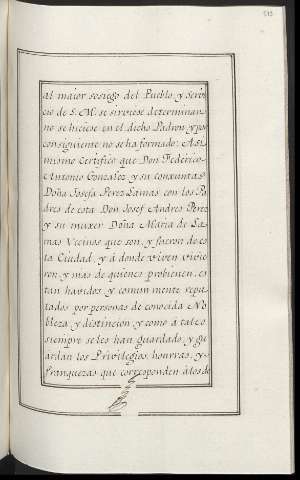 al maior sosiego del Pueblo, y Servi
cio de S. M. se sirviese determinar
no se hiciese en el dicho Padron, y por
consiguiente no se ha formado: Asi
mismo Certifico que Don Federico
Antonio Gonzalez y su conxunta
Doña Josefa Perez Lamas con los Pa
dres de esta Don Josef Andres Perez
y su muxer Doña Maria de La-
mas Vecinos que son, y fueron de es
ta Ciudad, y â donde viven vivie
ron, y más de quienes probienen, es
tan havidos, y comunmente repu
tados por personas de conocida No
bleza, y distincion, y como â tales
siempre se les han guardado, y gu
ardan los Privilegios, honrras, y
franquezas que corresponden â los de